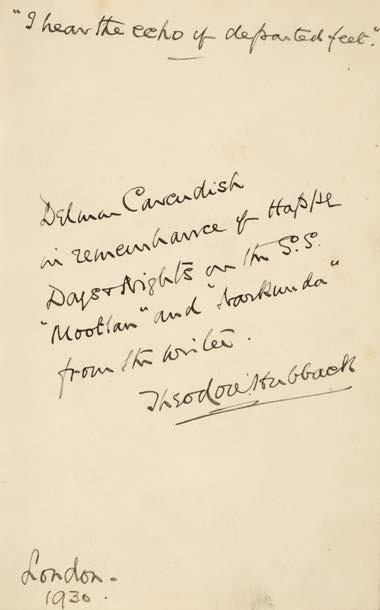 "I hear the echo of departed feet."
Delmar Cavendish
in remembrance of Happy
Days & Nights on the S.S.
"Mooltan" and "Narkunda"
from the writer.
Theodore Hubback
London.
1930.